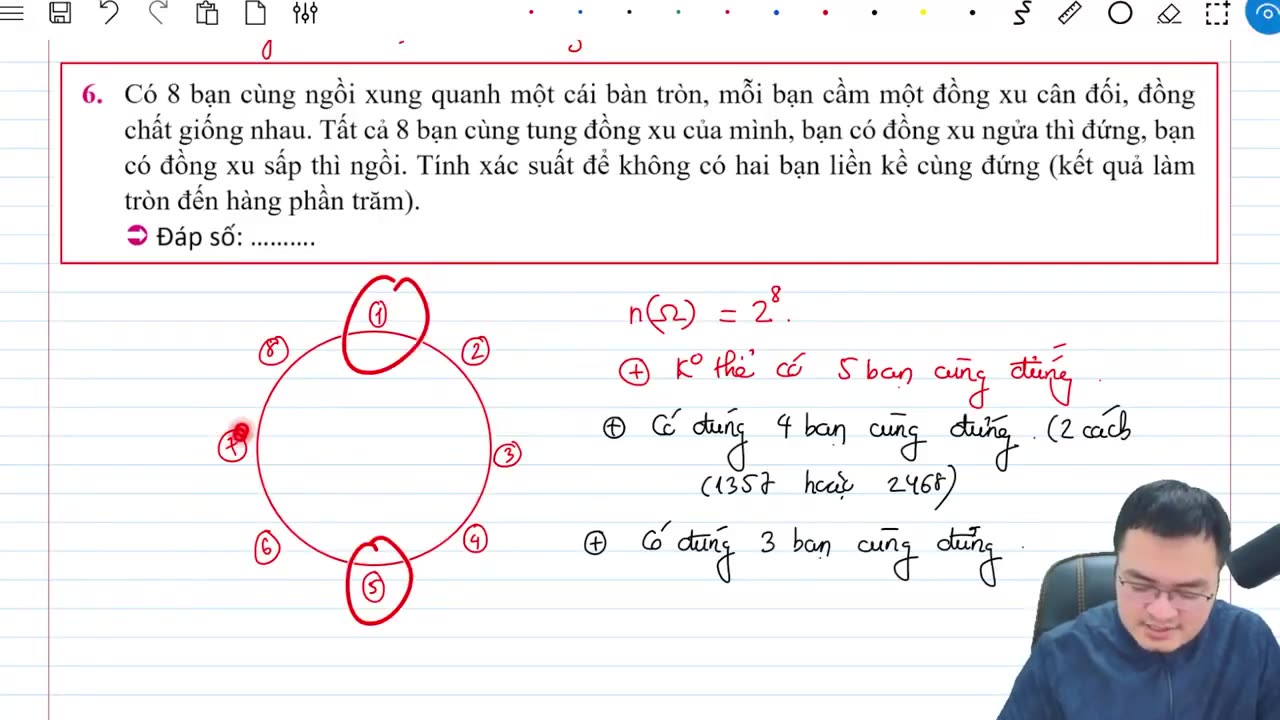 6. Có 8 bạn cùng ngồi xung quanh một cái bàn tròn, mỗi bạn cầm một đồng xu cân đối, đồng
chất giống nhau. Tất cả 8 bạn cùng tung đồng xu của mình, bạn có đồng xu ngửa thì đứng, bạn
có đồng xu sấp thì ngồi. Tính xác suất để không có hai bạn liền kề cùng đứng (kết quả làm
tròn đến hàng phần trăm).
➲ Đáp số: ..........
n(Ω) = 2⁸.
⊕ K⁰ thể có 5 bạn cùng đứng.
⊕ Có đúng 4 bạn cùng đứng. (2 cách
(1357 hoặc 2468)
⊕ Có đúng 3 bạn cùng đứng.
①
②
③
④
⑤
⑥
⑦
⑧